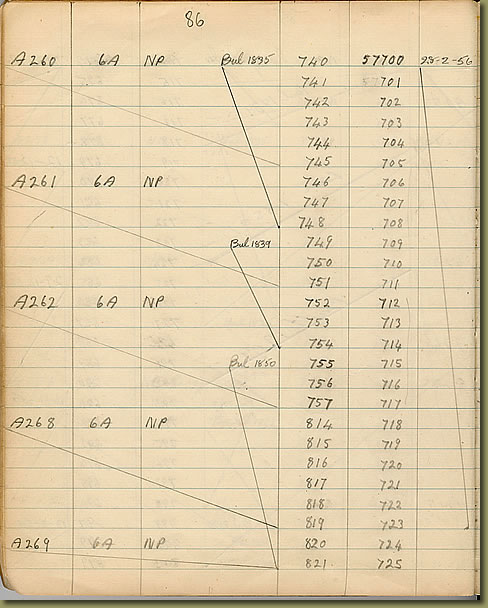 86
A260 6A NP Bul 1835 740 57700 28-2-56
741 701
742 702
743 703
744 704
745 705
A261 6A NP 746 706
747 707
748 708
Bul 1839 749 709
750 710
751 711
A262 6A NP 752 712
753 713
754 714
Bul 1850 755 715
756 716
757 717
A268 6A NP 814 718
815 719
816 720
817 721
818 722
819 723
A269 6A NP 820 724
821 725